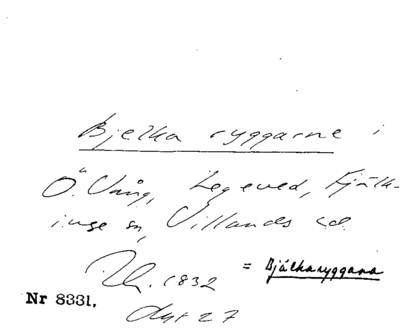 Bjelka ryggarne i
Ö. Vång, Legeved, Fjälk-
inge sn, Villands hd
1832 = Bjälkaryggana
Nr 8331.
27